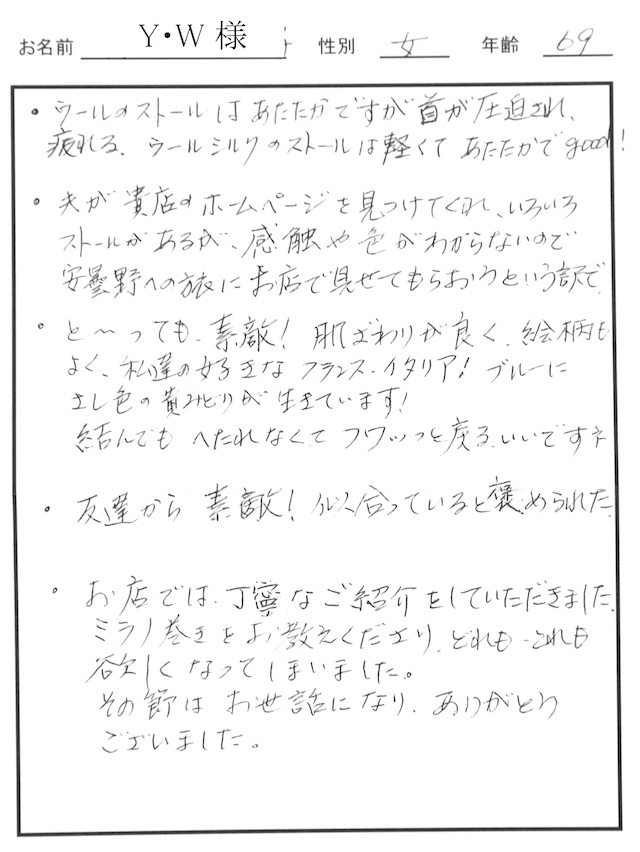 お名前 Y・W 様 性別 女 年齢 69
・ウールのストールはあたたかですが首が圧迫され、
疲れる。ウールシルクのストールは軽くてあたたかでgood!
・夫が貴店のホームページを見つけてくれ、いろいろ
ストールがあるが、感触や色がわからないので
安曇野への旅にお店で見せてもらおうという訳で
・と〜っても、素敵! 肌ざわりが良く、絵柄も
よく、私達の好きなフランス・イタリア! ブルーに
さし色の黄みどりが生きています!
結んでもへたれなくてフワッっと戻る、いいですネ
・友達から素敵! 似合っていると褒められた
・お店では、丁寧なご紹介をしていただきました。
ミラノ巻きをお教えくださり、どれも、これも
欲しくなってしまいました。
その節はお世話になり、ありがとう
ございました。